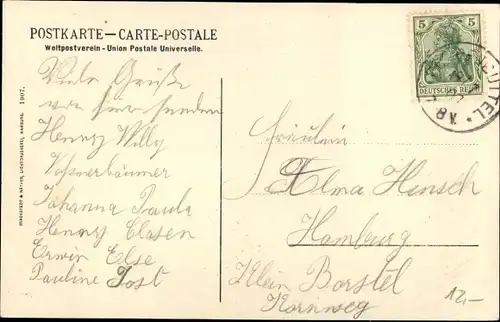 POSTKARTE – CARTE-POSTALE
Weltpostverein - Union Postale Universelle.
Viele Grüße
von hier senden
Henny Willy
Johanna Paula
Henny Clasen
Erwin Else
Pauline Jost
1907.
5 5
DEUTSCHES REICH
Fräulein
Alma Hinsch
Hamburg
Klein Borstel
Kornweg
12,-